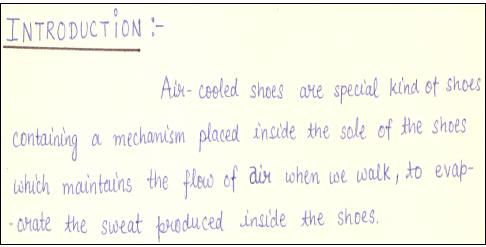 INTRODUCTION :-
Air-cooled shoes are special kind of shoes
containing a mechanism placed inside the sole of the shoes
which maintains the flow of air when we walk, to evap-
-orate the sweat produced inside the shoes.